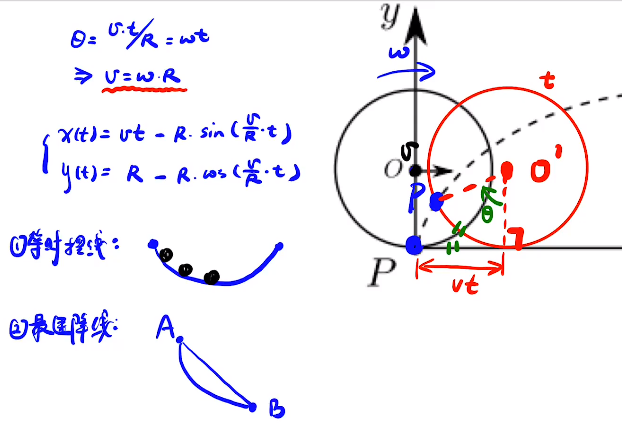 θ = v·t/R = ωt
⇒ v = ω·R
x(t) = vt - R·sin(v/R·t)
y(t) = R - R·cos(v/R·t)
①等时摆线:
②最速降线:
A
B
y
ω
t
v
O
O'
P
θ
P
vt